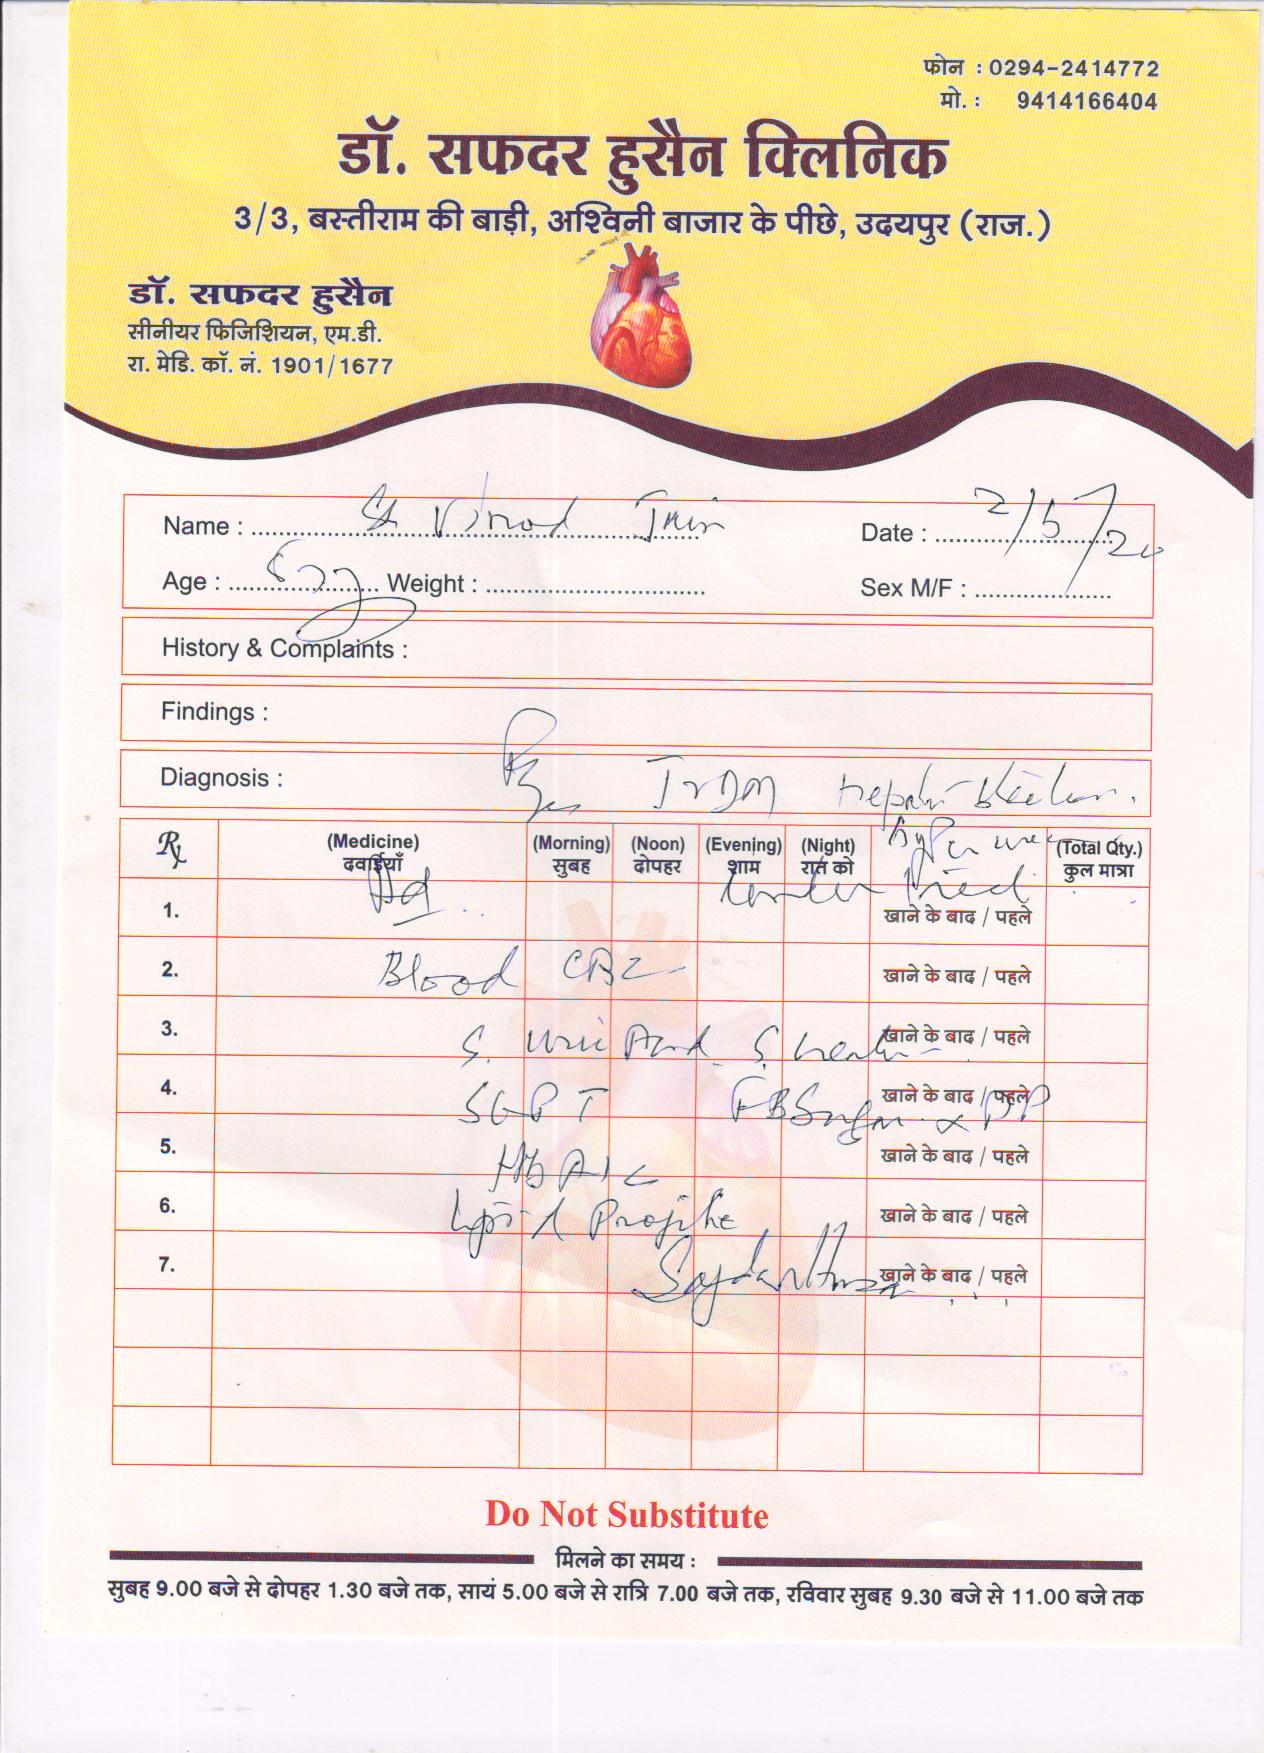 फोन : 0294-2414772
मो. : 9414166404
डॉ. सफदर हुसैन क्लिनिक
3/3, बस्तीराम की बाड़ी, अश्विनी बाजार के पीछे, उदयपुर (राज.)
डॉ. सफदर हुसैन
सीनीयर फिजिशियन, एम.डी.
रा. मेडि. कॉ. नं. 1901/1677
Name : Vinod Jain Date : 2/5/20
Age : Weight : Sex M/F :
History & Complaints :
Findings :
Diagnosis : T2DM
Rx (Medicine) दवाईयाँ (Morning) सुबह (Noon) दोपहर (Evening) शाम (Night) रात को (Total Qty.) कुल मात्रा
1. Ad खाने के बाद / पहले
2. Blood CBC खाने के बाद / पहले
3. S. Uric Acid S. खाने के बाद / पहले
4. SGPT FBSugar & PP खाने के बाद / पहले
5. HbA1c खाने के बाद / पहले
6. Lipid Profile खाने के बाद / पहले
7. खाने के बाद / पहले
Do Not Substitute
मिलने का समय :
सुबह 9.00 बजे से दोपहर 1.30 बजे तक, सायं 5.00 बजे से रात्रि 7.00 बजे तक, रविवार सुबह 9.30 बजे से 11.00 बजे तक